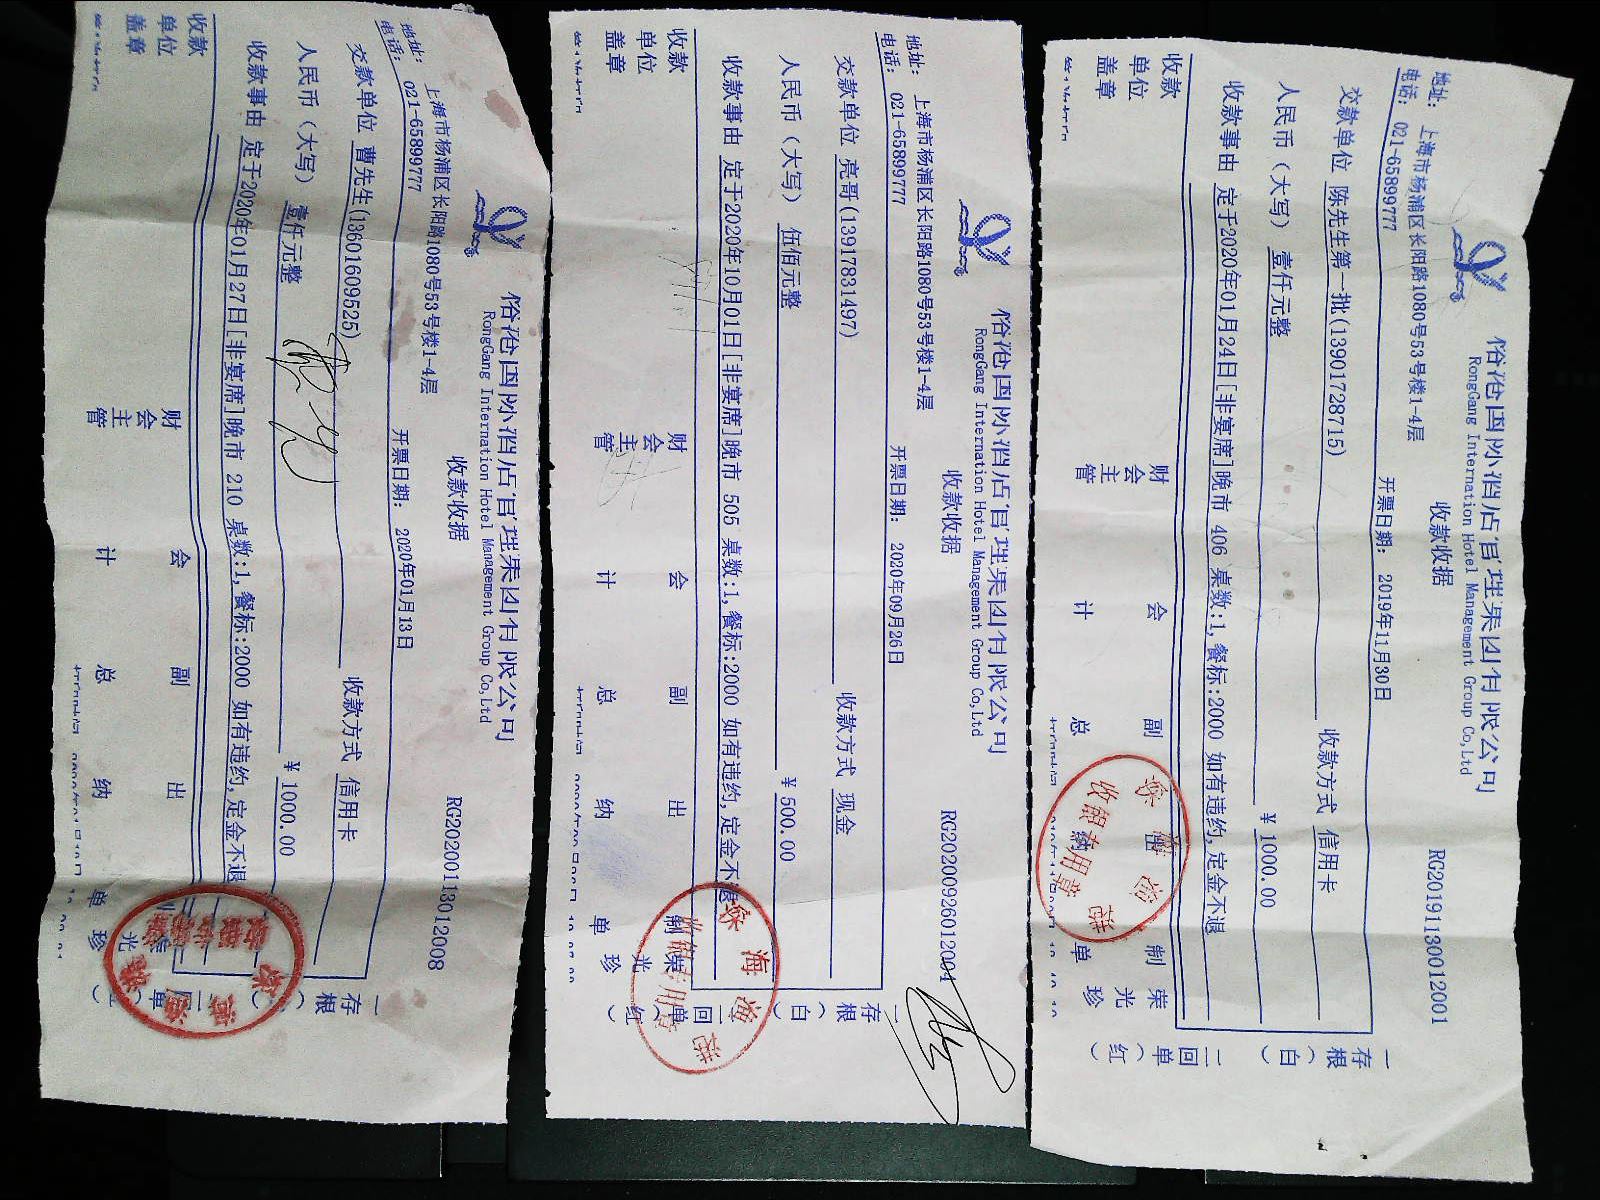 RongGang Internation Hotel Management Group Co,Ltd
收款收据
RG20200113012008
地址: 上海市杨浦区长阳路1080号53号楼1-4层
电话: 021-65899777
开票日期: 2020年01月13日
交款单位 曹先生(13601609525)
收款方式 信用卡
人民币(大写) 壹仟元整
¥ 1000.00
收款事由 定于2020年01月27日[非宴席]晚市 210 桌数:1,餐标:2000 如有违约,定金不退
收款单位盖章
财会主管
会计
副总
出纳
一存根(白)
RongGang Internation Hotel Management Group Co,Ltd
收款收据
RG20200926012004
地址: 上海市杨浦区长阳路1080号53号楼1-4层
电话: 021-65899777
开票日期: 2020年09月26日
交款单位 亮哥(13917831497)
收款方式 现金
人民币(大写) 伍佰元整
¥ 500.00
收款事由 定于2020年10月01日[非宴席]晚市 505 桌数:1,餐标:2000 如有违约,定金不退
收款单位盖章
财会主管
会计
副总
出纳
制单
荣光珍
一存根(白)
二回单(红)
RongGang Internation Hotel Management Group Co,Ltd
收款收据
RG20191130012001
地址: 上海市杨浦区长阳路1080号53号楼1-4层
电话: 021-65899777
开票日期: 2019年11月30日
交款单位 陈先生第一批(13901728715)
收款方式 信用卡
人民币(大写) 壹仟元整
¥ 1000.00
收款事由 定于2020年01月24日[非宴席]晚市 406 桌数:1,餐标:2000 如有违约,定金不退
收款单位盖章
财会主管
会计
副总
出纳
制单
荣光珍
一存根(白)
二回单(红)
收银专用章